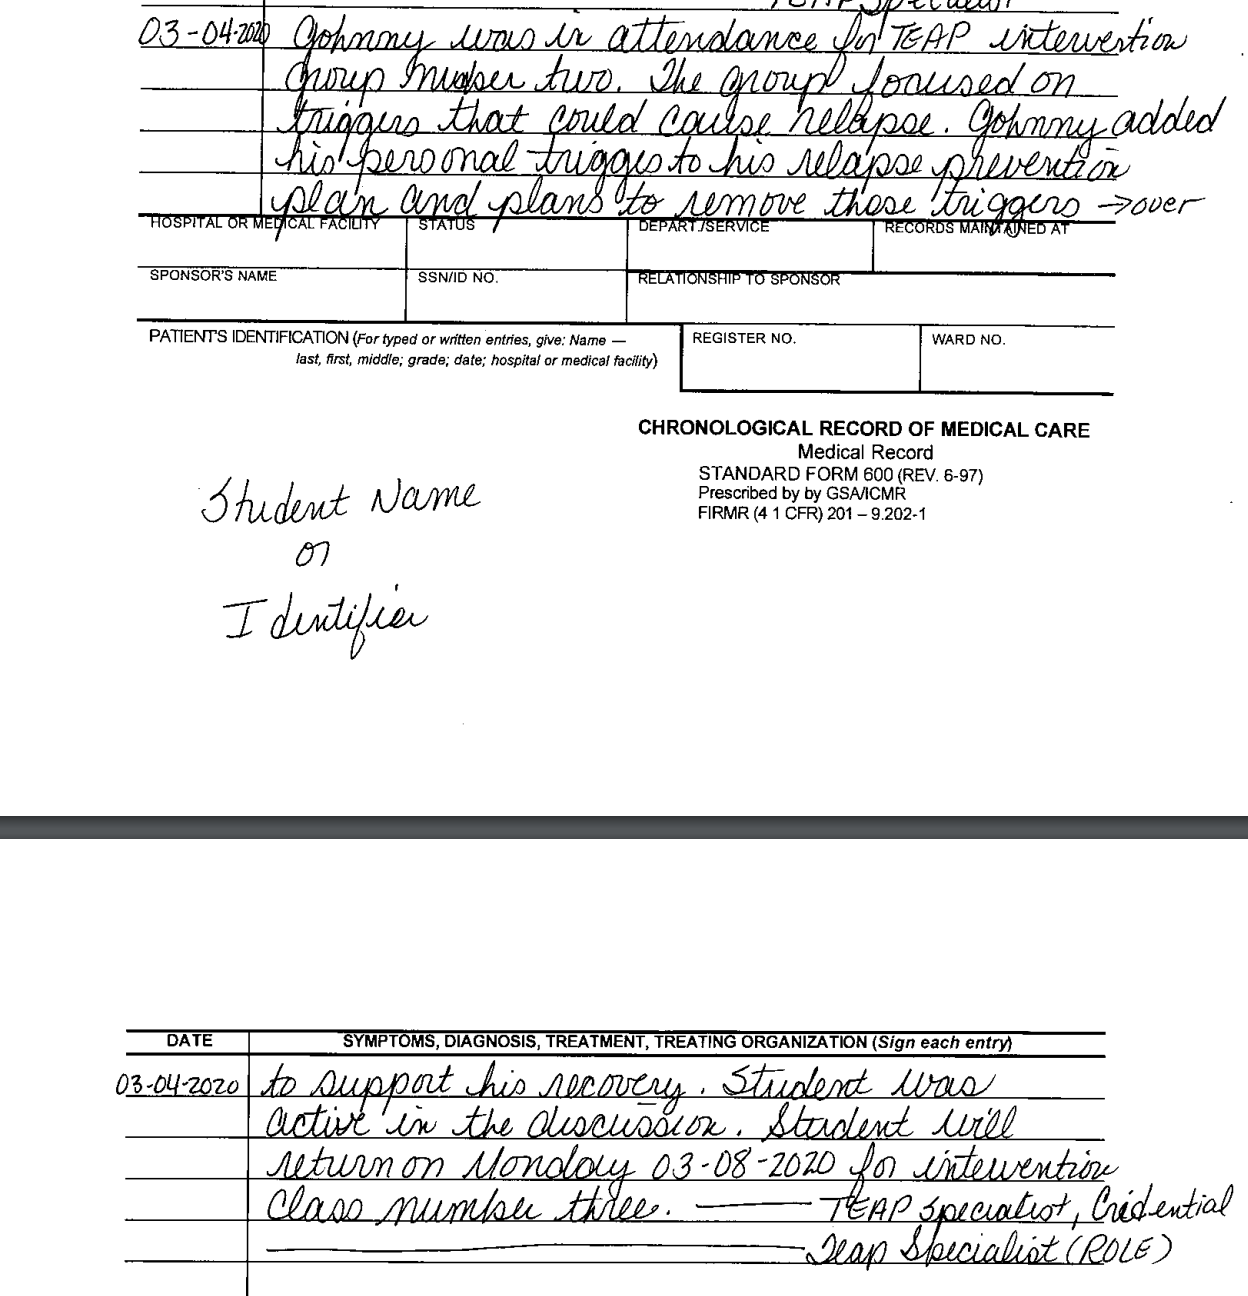 TEAP Specialist
03-04-2020 Johnny was in attendance for TEAP intervention
group number two. The group focused on
triggers that could cause relapse. Johnny added
his personal trigges to his relapse prevention
plan and plans to remove those triggers →over
HOSPITAL OR MEDICAL FACILITY STATUS DEPART./SERVICE RECORDS MAINTAINED AT
SPONSOR'S NAME SSN/ID NO. RELATIONSHIP TO SPONSOR
PATIENT'S IDENTIFICATION (For typed or written entries, give: Name —
last, first, middle; grade; date; hospital or medical facility)
REGISTER NO. WARD NO.
CHRONOLOGICAL RECORD OF MEDICAL CARE
Medical Record
STANDARD FORM 600 (REV. 6-97)
Prescribed by by GSA/ICMR
FIRMR (4 1 CFR) 201 – 9.202-1
Student Name
or
Identifier
DATE SYMPTOMS, DIAGNOSIS, TREATMENT, TREATING ORGANIZATION (Sign each entry)
03-04-2020 to support his recovery. Student was
active in the discussion. Student will
return on Monday 03-08-2020 for intervention
Class number three. — TEAP Specialist, Credential
Teap Specialist (ROLE)